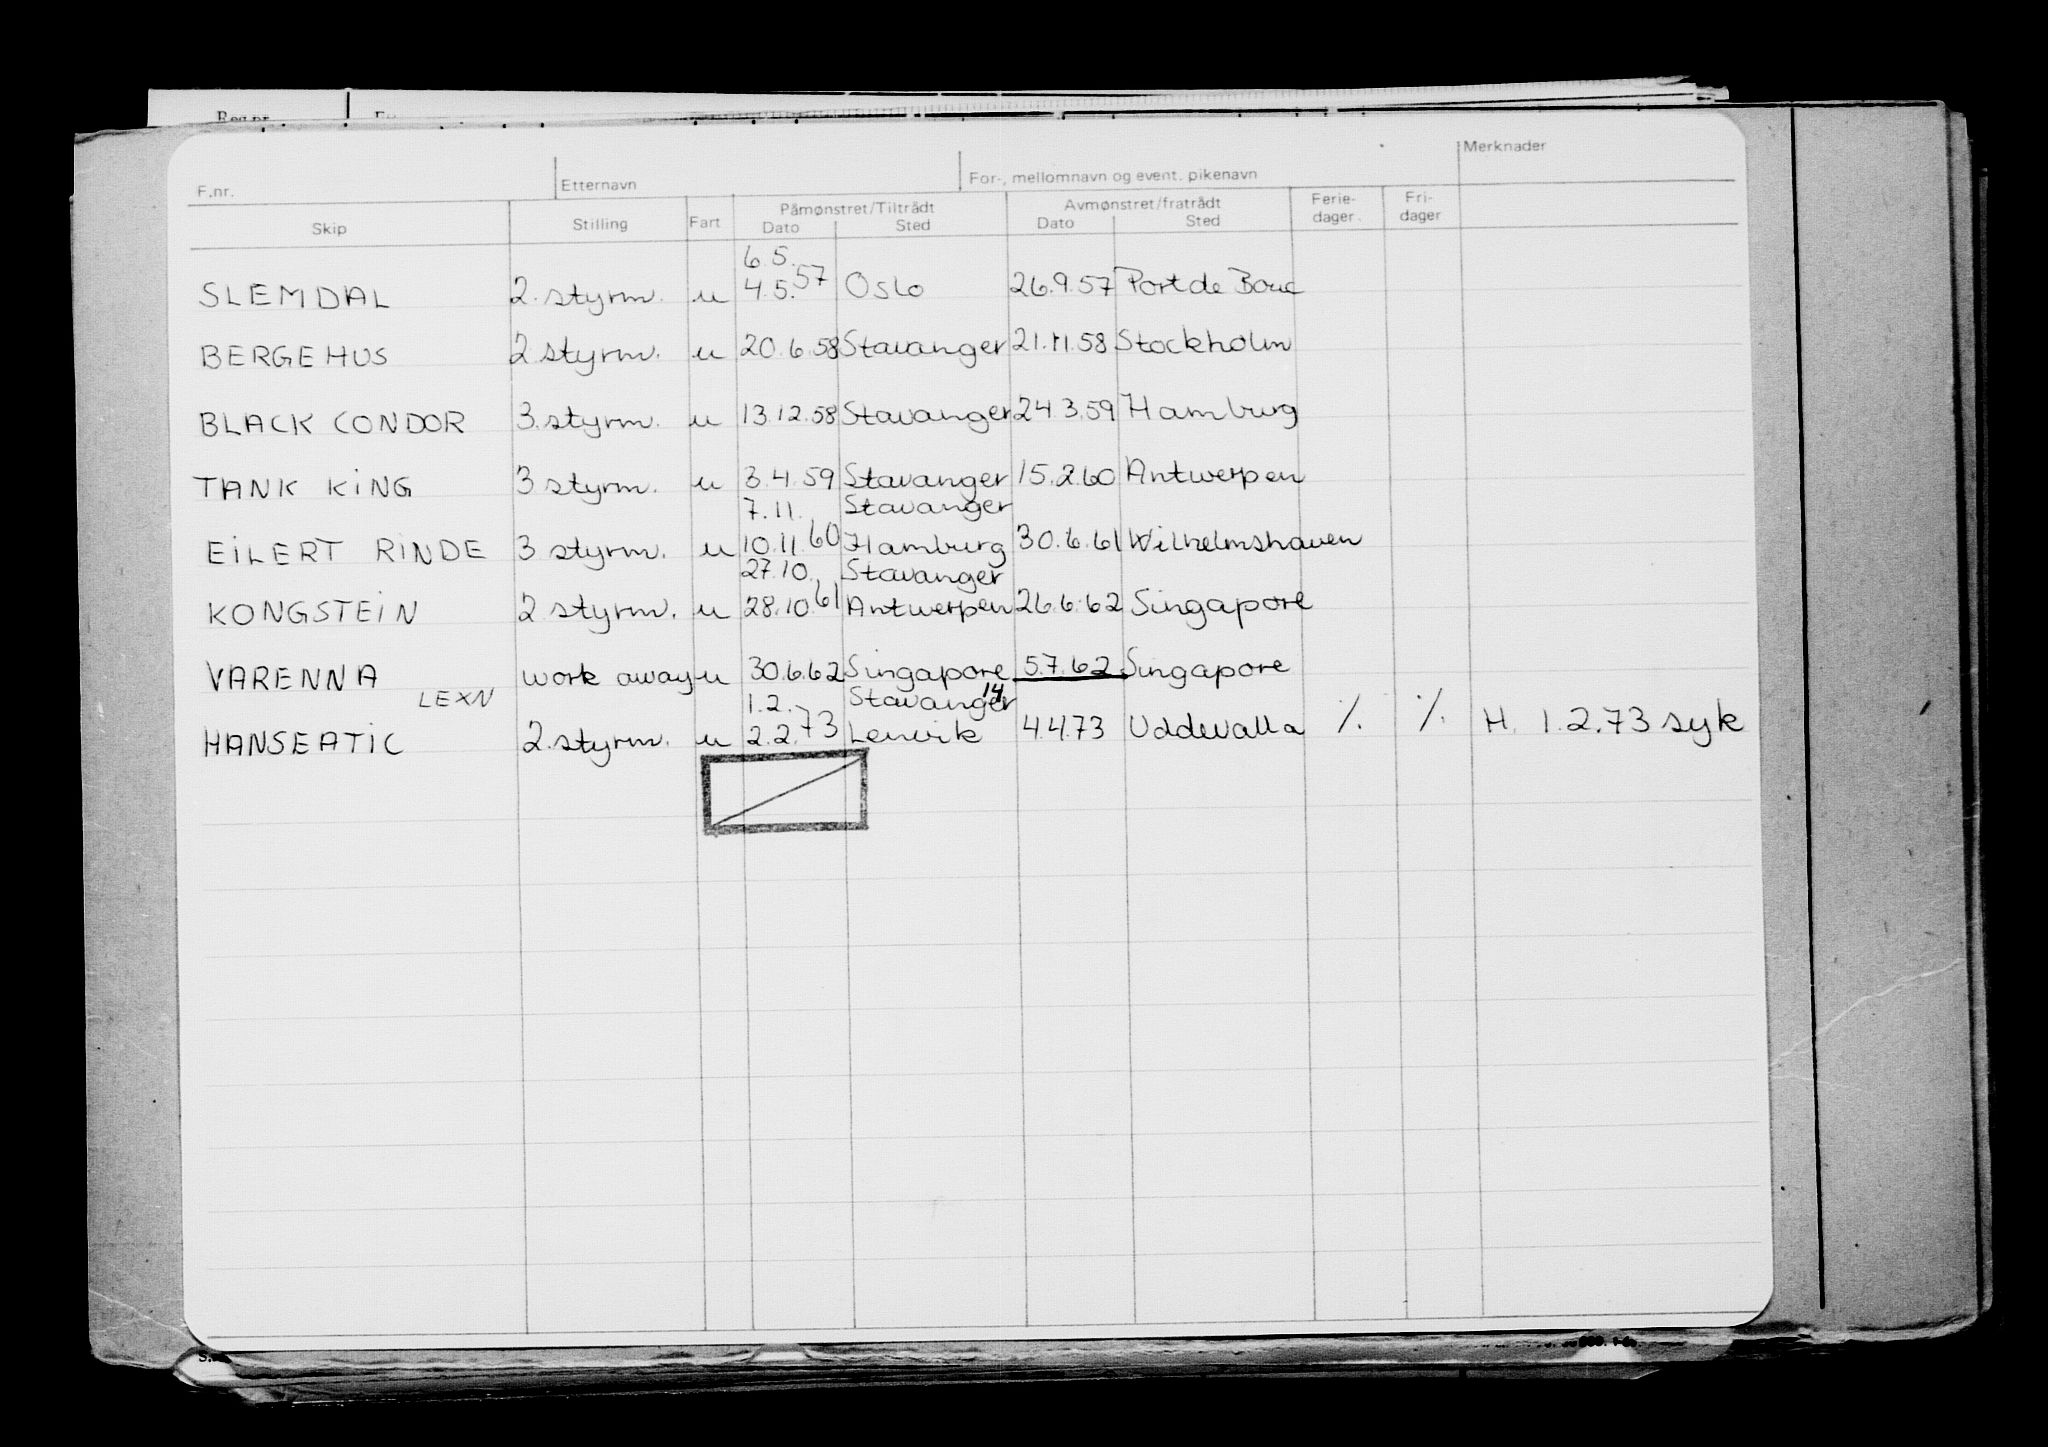 Reg.nr.
F.nr. Etternavn For-, mellomnavn og event. pikenavn Merknader
Skip Stilling Fart Påmønstret/Tiltrådt Avmønstret/fratrådt Ferie- Fri-
Dato Sted Dato Sted dager. dager
6.5.
SLEMDAL 2. styrm. u 4.5. 57 Oslo 26.9.57 Port de Bouc
BERGEHUS 2 styrm. u 20.6.58 Stavanger 21.11.58 Stockholm
BLACK CONDOR 3. styrm. u 13.12.58 Stavanger 24.3.59 Hamburg
TANK KING 3 styrm. u 3.4.59 Stavanger 15.2.60 Antwerpen
7.11. Stavanger
EILERT RINDE 3 styrm. u 10.11.60 Hamburg 30.6.61 Wilhelmshaven
27.10. Stavanger
KONGSTEIN 2 styrm. u 28.10.61 Antwerpen 26.6.62 Singapore
VARENNA work away u 30.6.62 Singapore 5.7.62 Singapore
LEXN 1.2. Stavanger 14
HANSEATIC 2. styrm. u 2.2.73 Lervik 4.4.73 Uddevalla /. /. H. 1.2.73 syk